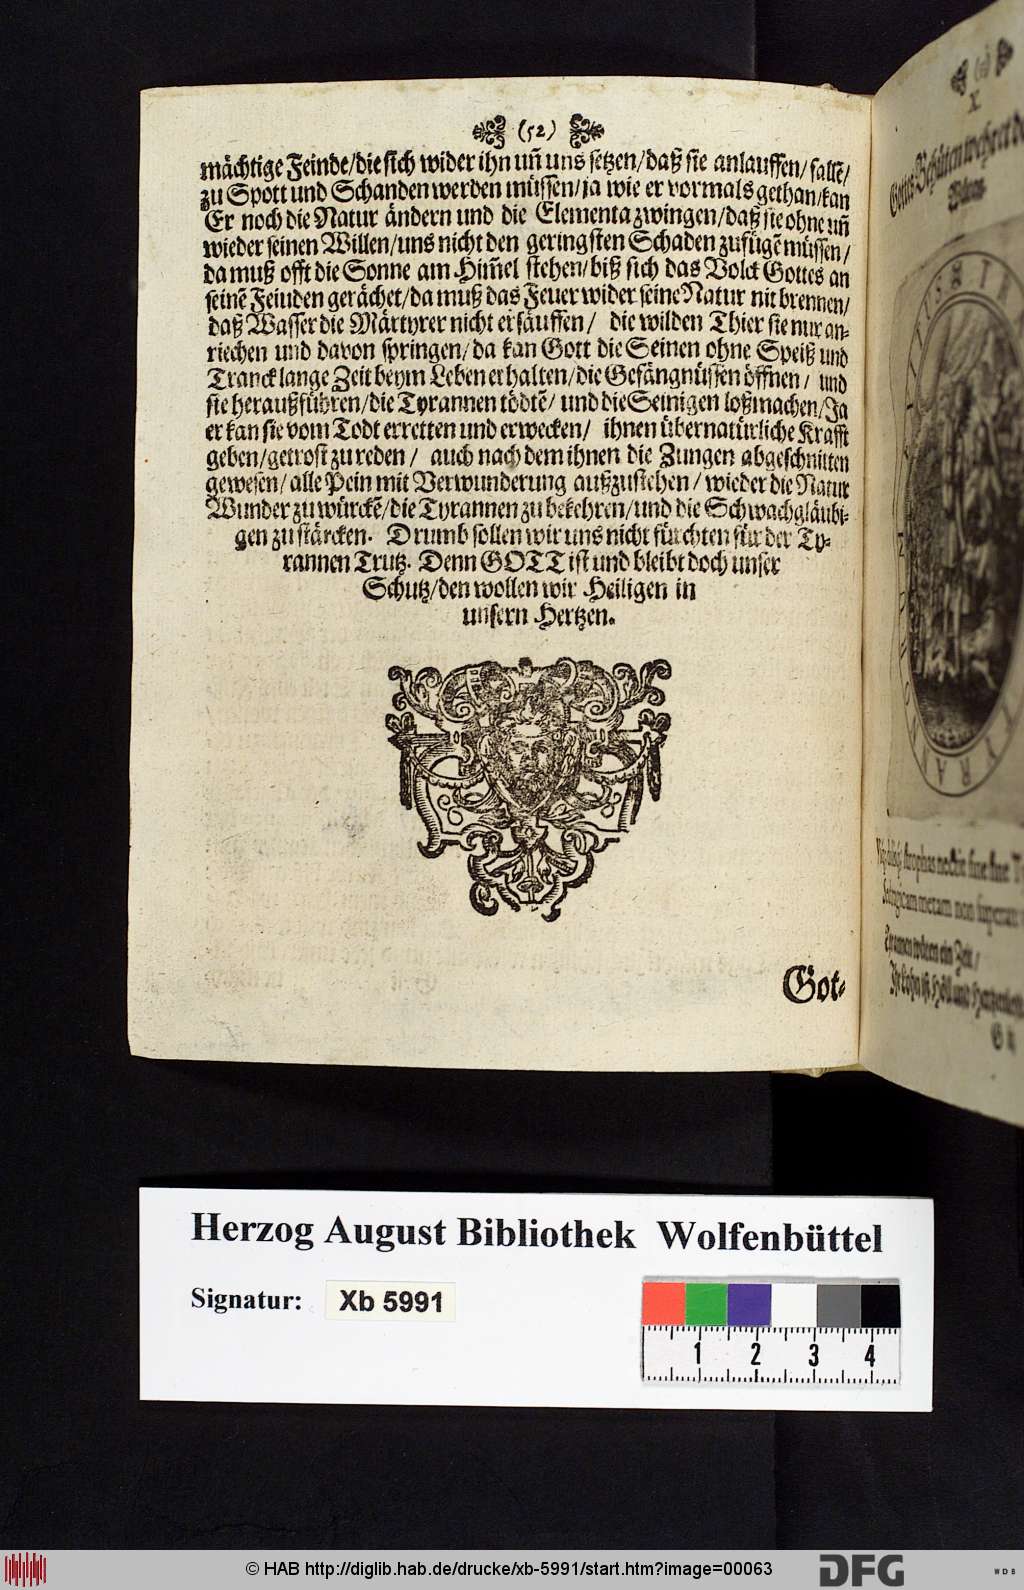 (52)
mächtige Feinde/die sich wider ihn uñ uns setzen/daß sie anlauffen/fallẽ/
zu Spott und Schanden werden müssen/ja wie er vormals gethan/kan
Er noch die Natur ändern und die Elementa zwingen/daß sie ohne uñ
wieder seinen Willen/uns nicht den geringsten Schaden zufügẽ müssen/
da muß offt die Sonne am Him̃el stehen/biß sich das Volck Gottes an
seinẽ Feinden gerächet/da muß das Feuer wider seine Natur nit brennen/
daß Wasser die Märtyrer nicht ersäuffen/ die wilden Thier sie nur an-
riechen und davon springen/da kan Gott die Seinen ohne Speiß und
Tranck lange Zeit beym Leben erhalten/die Gefängnüssen öffnen/ und
sie heraußführen/die Tyrannen tödtẽ/ und die Seinigen loßmachen/Ja
er kan sie vom Todt erretten und erwecken/ ihnen übernatürliche Krafft
geben/getrost zu reden/ auch nach dem ihnen die Zungen abgeschnitten
gewesen/alle Pein mit Verwunderung außzustehen/wieder die Natur
Wunder zu würckẽ/die Tyrannen zu bekehren/und die Schwachgläubi-
gen zu stärcken. Drumb sollen wir uns nicht fürchten für der Ty-
rannen Trutz. Denn GOTT ist und bleibt doch unser
Schutz/den wollen wir Heiligen in
unsern Hertzen.
Got-
X.
Herzog August Bibliothek Wolfenbüttel
Signatur: Xb 5991
1 2 3 4
© HAB http://diglib.hab.de/drucke/xb-5991/start.htm?image=00063
DFG
WDB